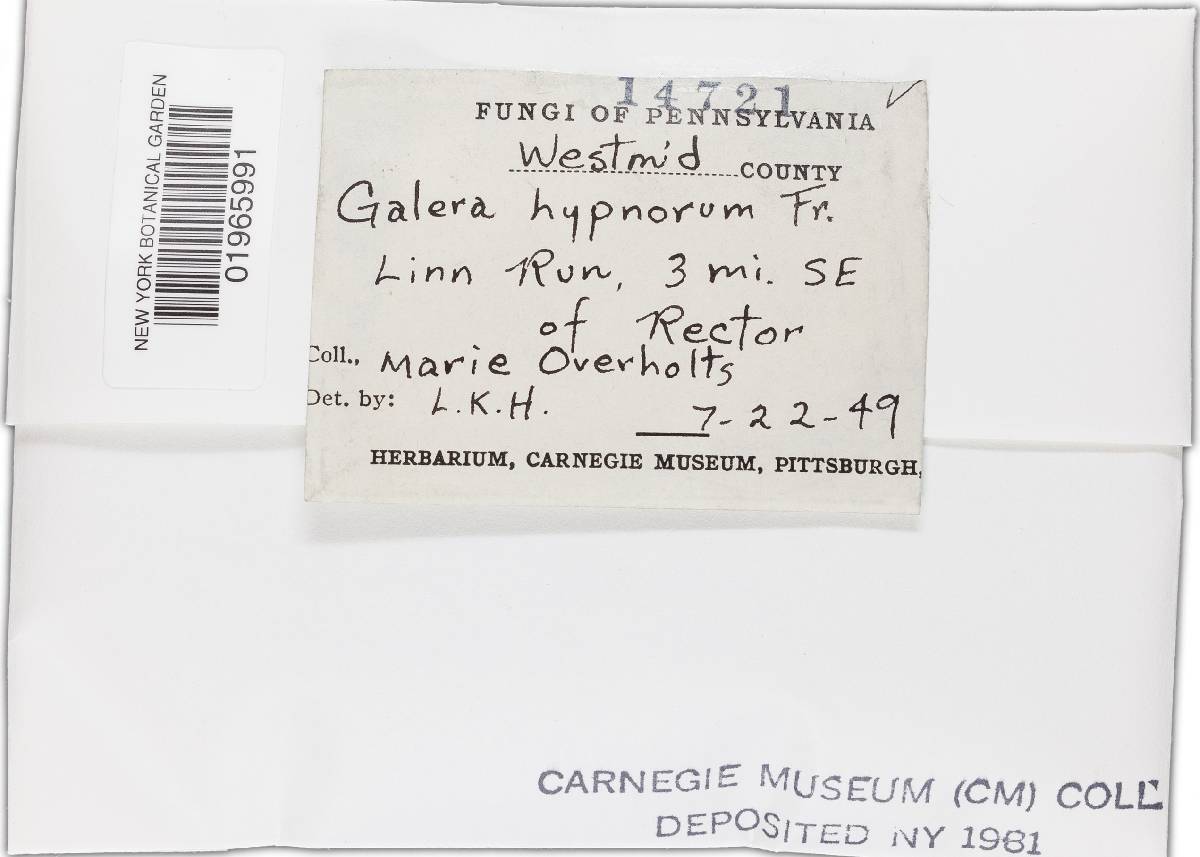 NEW YORK BOTANICAL GARDEN
01965991
14721
FUNGI OF PENNSYLVANIA
Westm'd COUNTY
Galera hypnorum Fr.
Linn Run, 3 mi. SE
of Rector
Coll., Marie Overholts
Det. by: L.K.H. 7-22-49
HERBARIUM, CARNEGIE MUSEUM, PITTSBURGH,
CARNEGIE MUSEUM (CM) COLL
DEPOSITED NY 1981